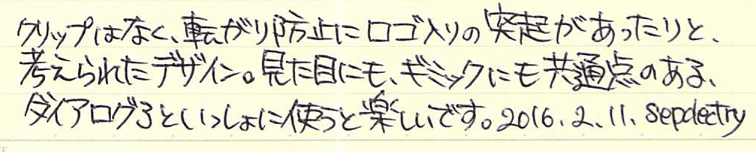 クリップはなく、転がり防止にロゴ入りの突起があったりと、
考えられたデザイン。見た目にも、ギミックにも共通点のある、
ダイアログ3といっしょに使うと楽しいです。2016.2.11. sepdectry